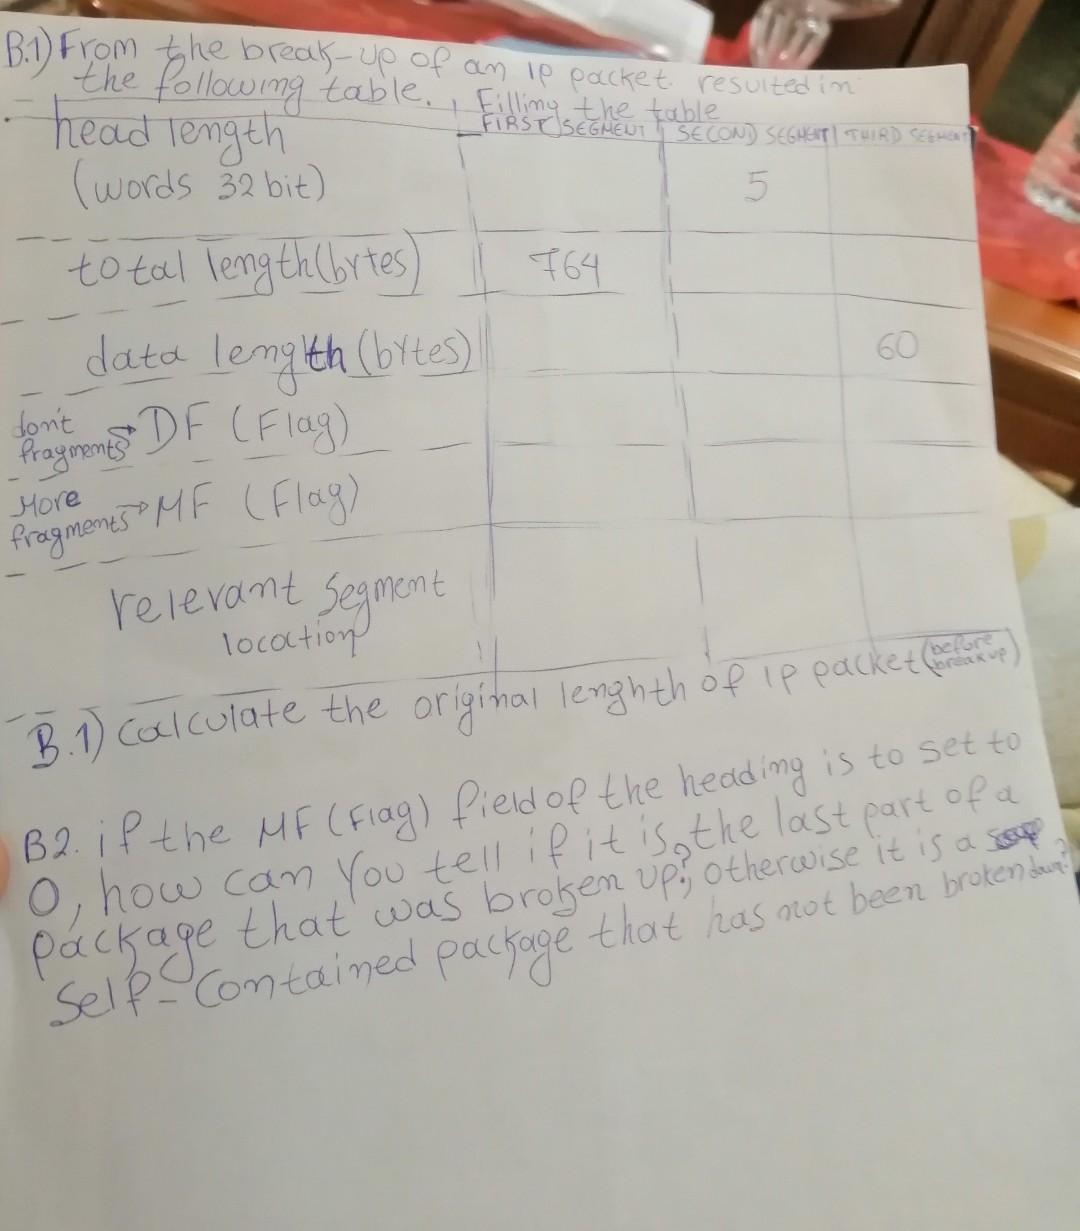 B.1) From the break-up of an IP packet. resulted in
the following table. Filling the table
head length FIRST SEGMENT SECOND SEGMENT THIRD SEGMENT
(words 32 bit) 5
total length (bytes) 764
data length (bytes) 60
don't fragments → DF (Flag)
More fragments → MF (Flag)
relevant segment
location
B.1) Calculate the original lenghth of IP packet (before breakup)
B2. if the MF (Flag) field of the heading is to set to
0, how can you tell if it is the last part of a
package that was broken up?; otherwise it is a
Self-Contained package that has not been broken down?